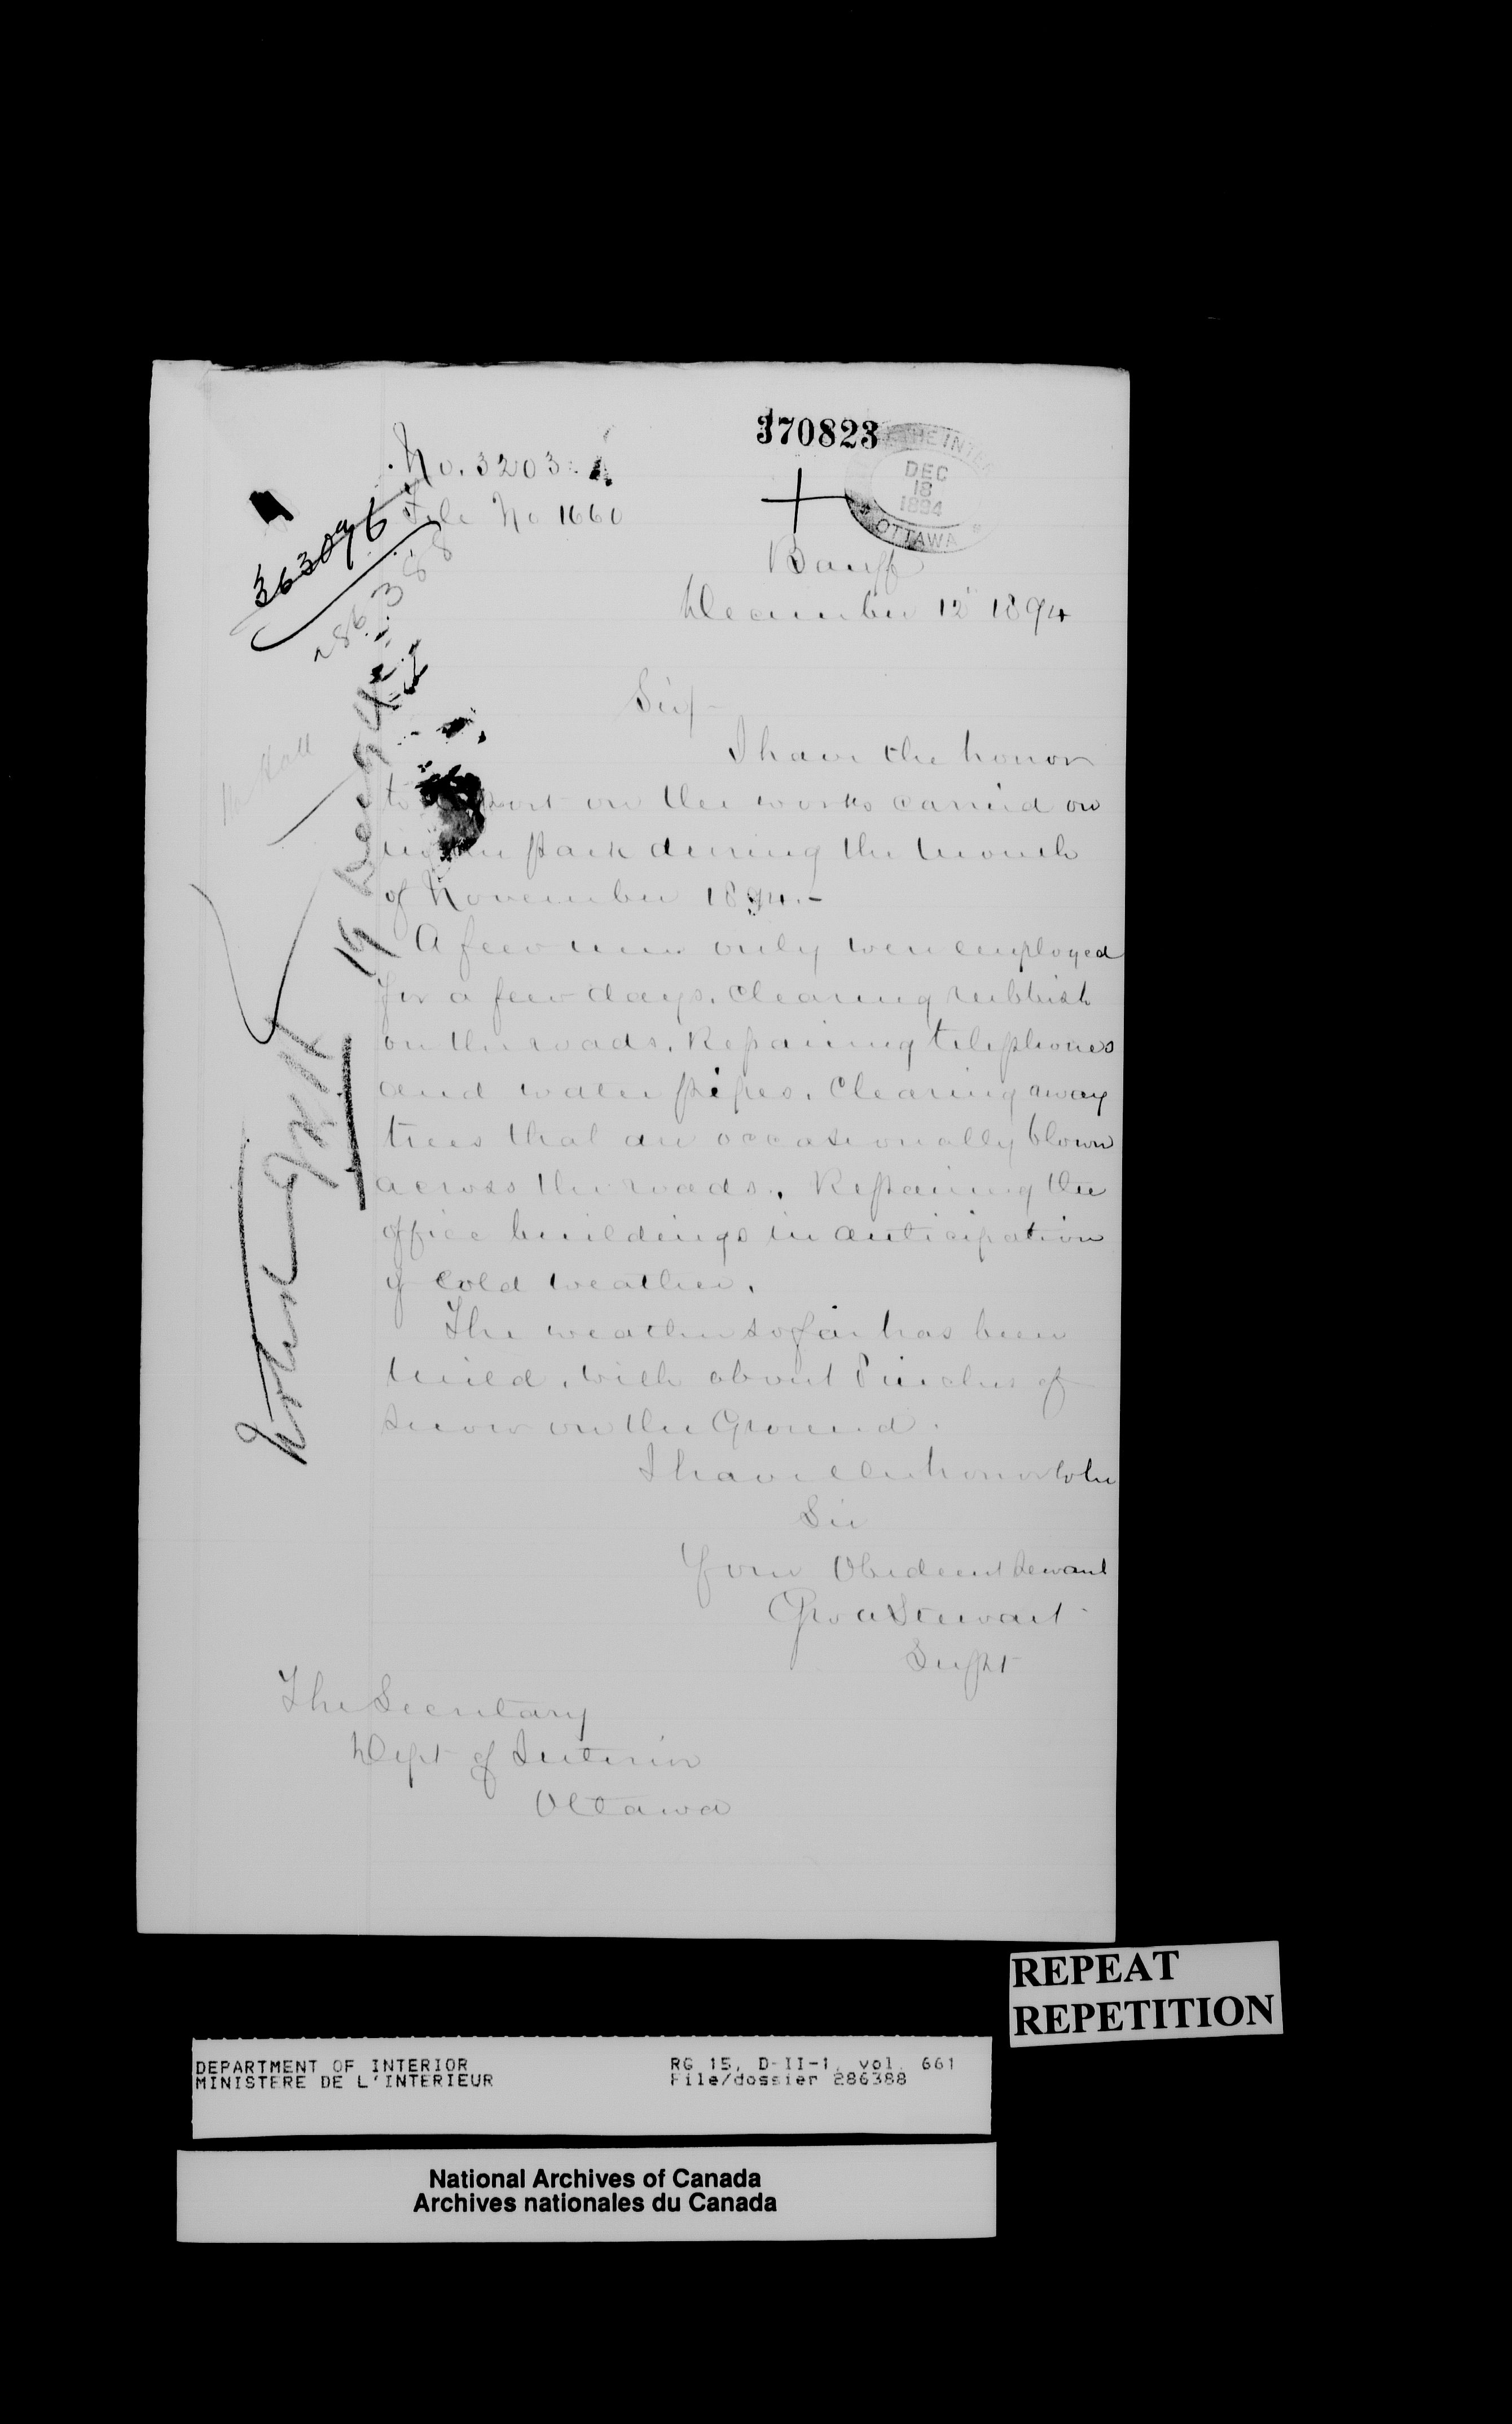 370823
No. 3203
File No 1660
363096
286388
THE INTE
DEC
18
1894
OTTAWA
Banff
December 12" 1894
Sir/-
I have the honor
to report on the works carried on
in the Park during the month
of November 1894.-
A few men only were employed
for a few days. Clearing rubbish
on the roads. Repairing telephones
and water pipes. Clearing away
trees that are occasionally blown
across the roads. Repairing the
office buildings in anticipation
of cold weather.
The weather so far has been
mild, with about 8 inches of
snow on the Ground.
I have the honor to be
Sir
Your Obedient Servant
Geo A Stewart
Supt
The Secretary
Dept of Interior
Ottawa
Mr Hall
Noted
19 Dec 94
REPEAT
REPETITION
DEPARTMENT OF INTERIOR RG 15, D-II-1, vol. 661
MINISTERE DE L'INTERIEUR File/dossier 286388
National Archives of Canada
Archives nationales du Canada